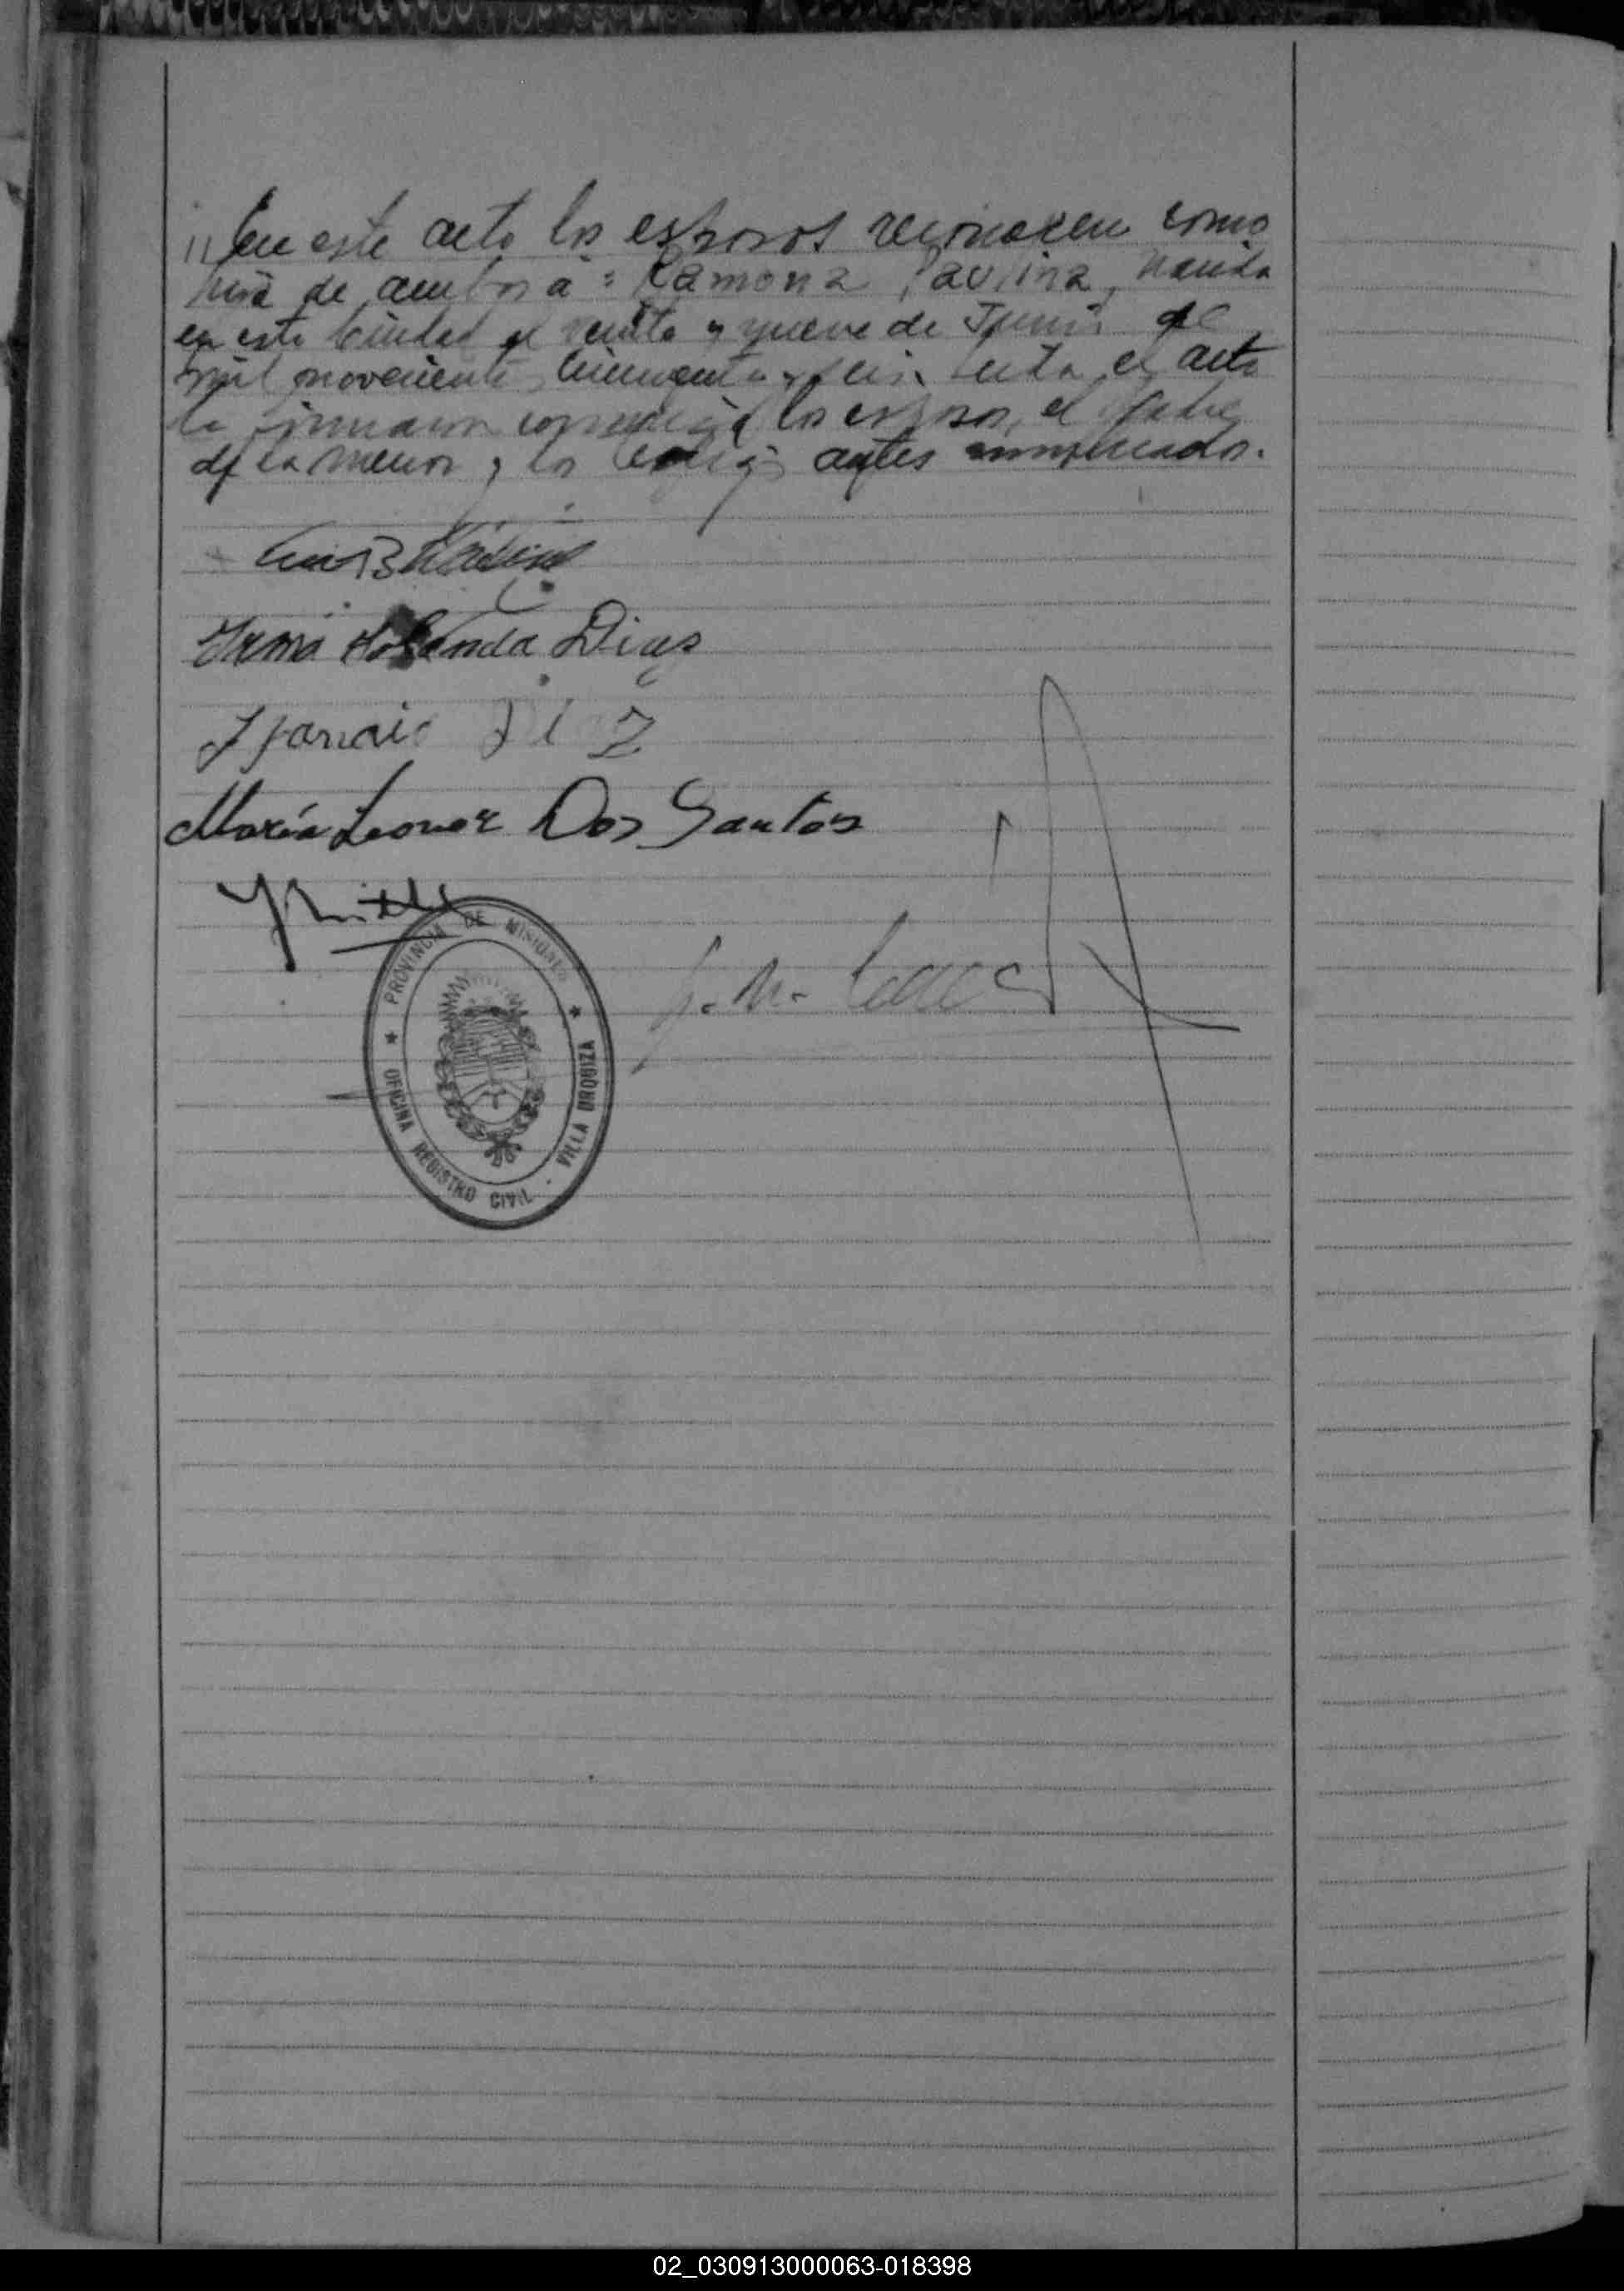 // En este acto los esposos reconocen como
hija de ambos a: Ramona Paulina, nacida
en esta Ciudad el veinte y nueve de Junio de
mil novecientos cincuenta y seis. Leída el acta
la firmaron conmigo los esposos, el padre
de la menor y los testigos antes nombrados.
Luis B
Irma Yolanda Diaz
Diaz
María Leonor Dos Santos
PROVINCIA DE MISIONES
OFICINA REGISTRO CIVIL - VILLA URQUIZA
02_030913000063-018398